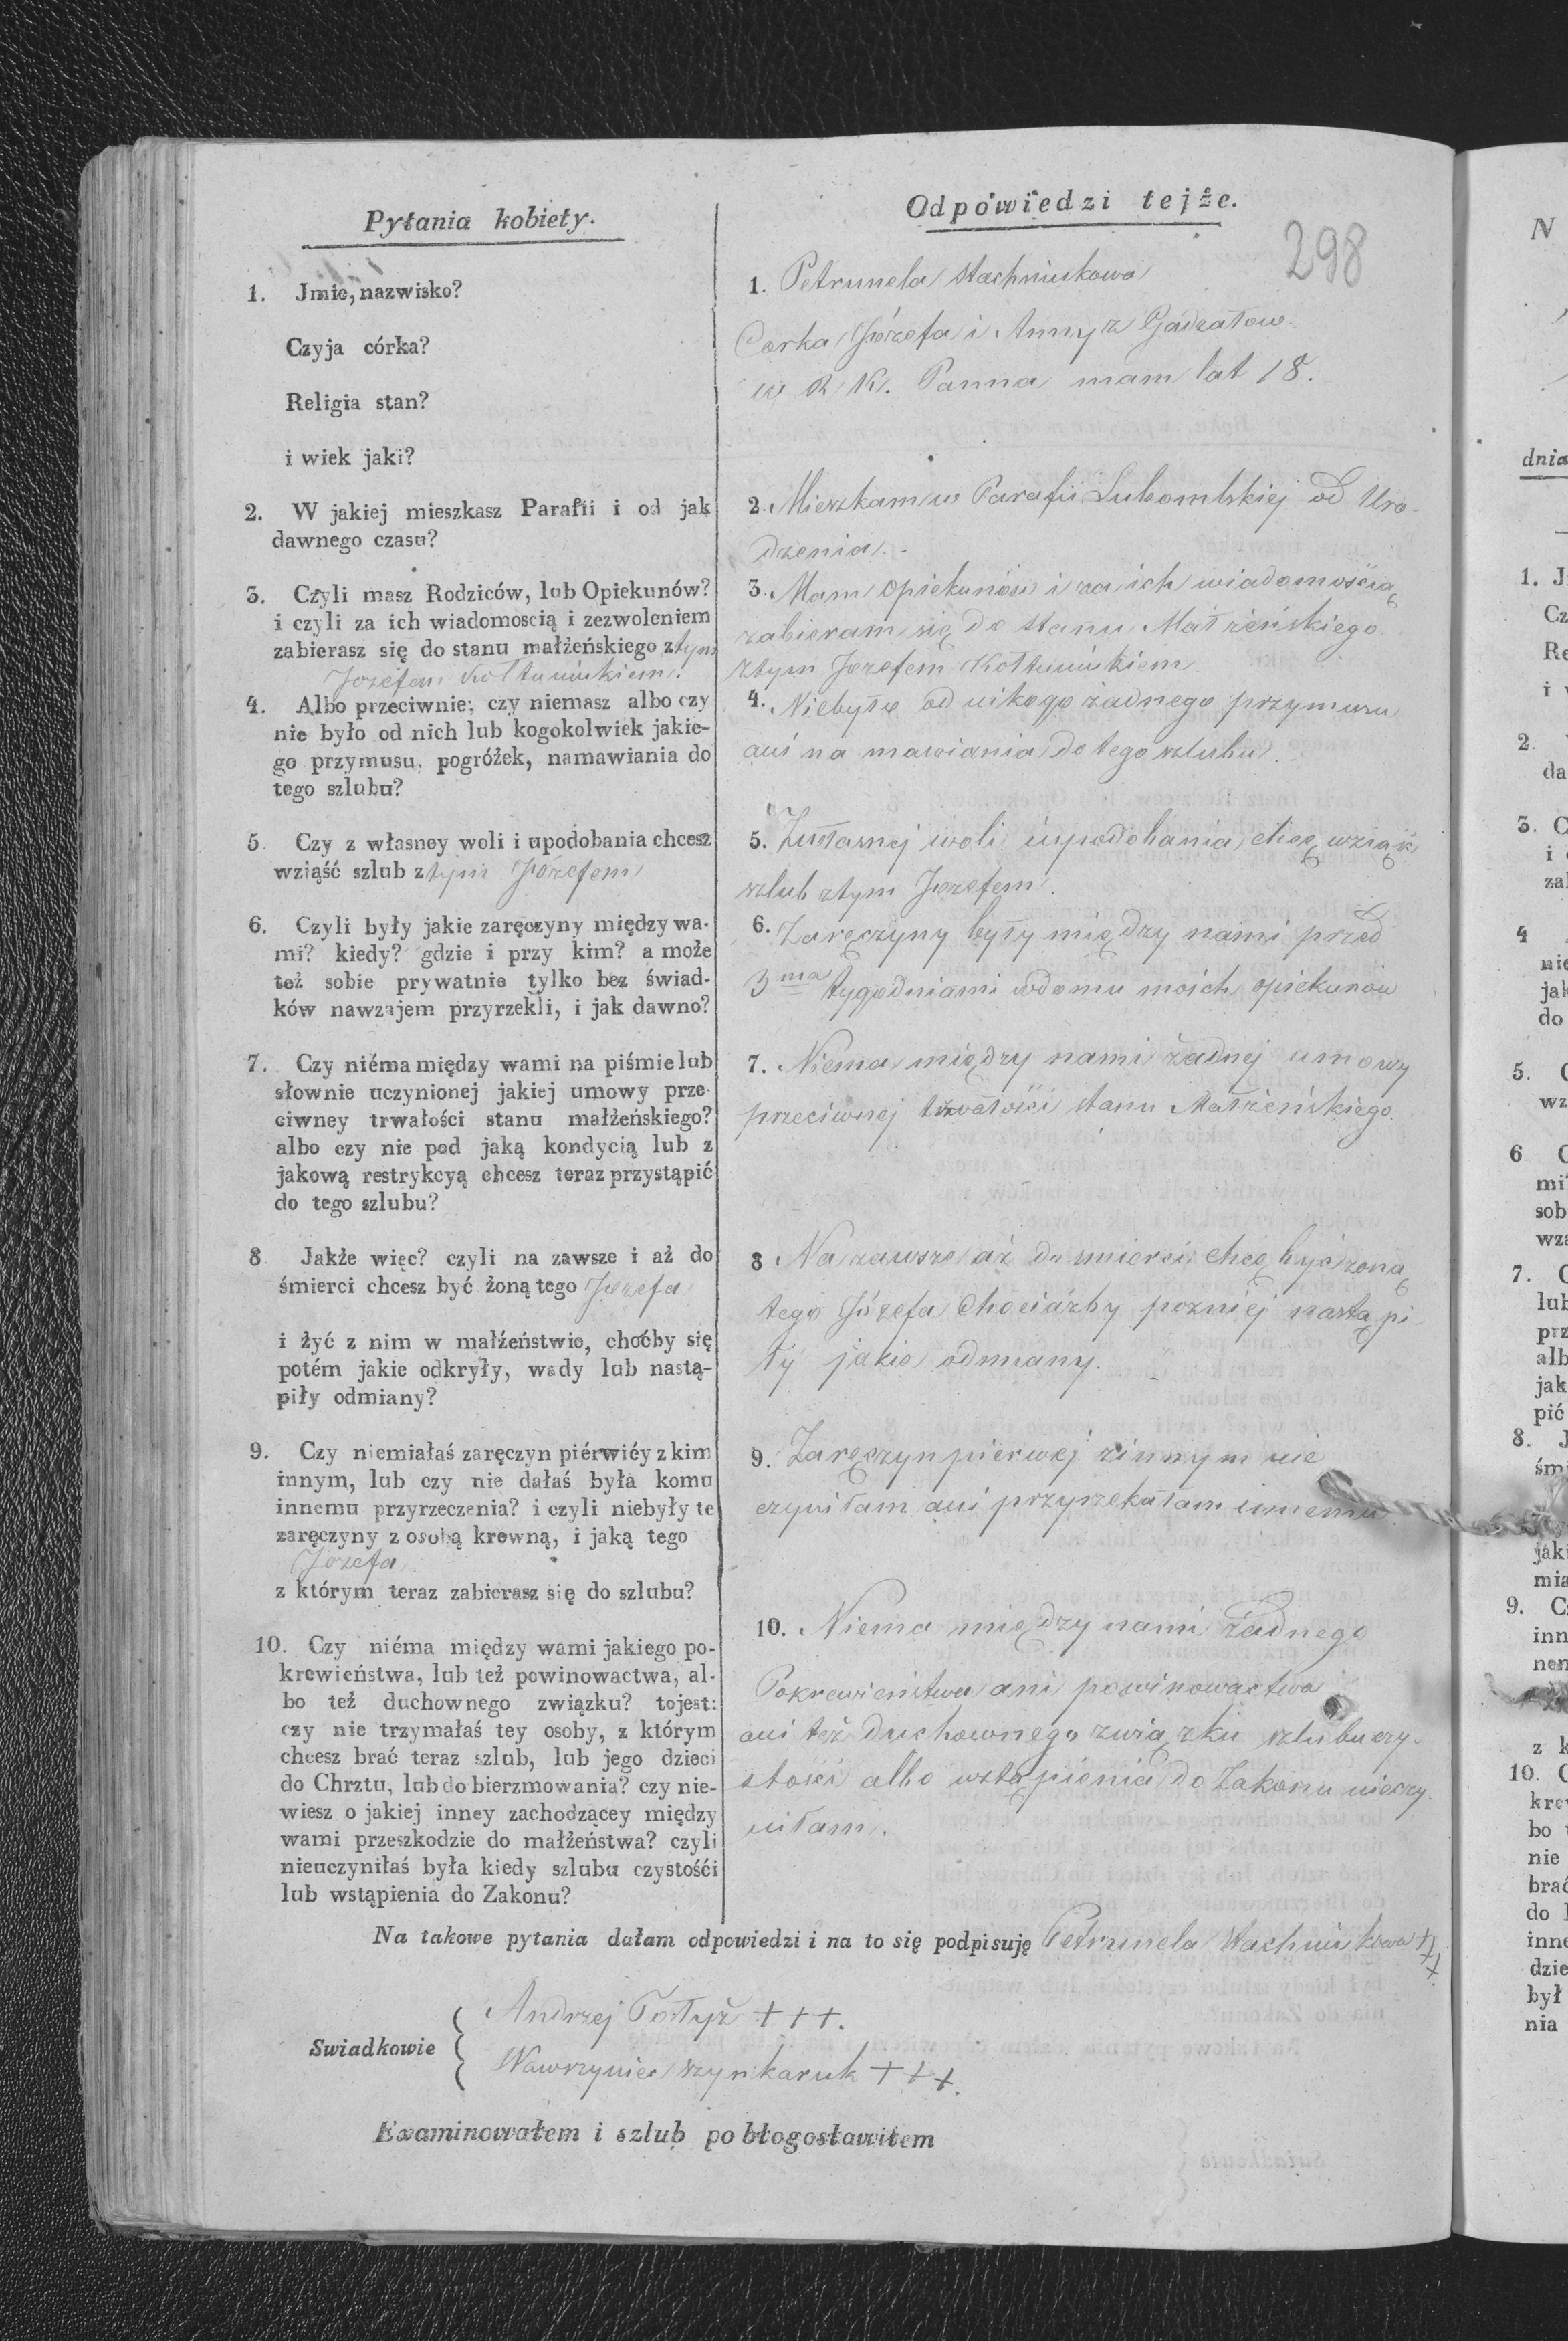 Pytania kobiety.
1. Jmie, nazwisko?
Czyja córka?
Religia stan?
i wiek jaki?
2. W jakiej mieszkasz Parafii i od jak
dawnego czasu?
3. Czyli masz Rodziców, lub Opiekunów?
i czyli za ich wiadomoscią i zezwoleniem
zabierasz się do stanu małżeńskiego z tym
Jozefem Kołtuniukiem.
4. Albo przeciwnie, czy niemasz albo czy
nie było od nich lub kogokolwiek jakie-
go przymusu, pogróżek, namawiania do
tego szlubu?
5 Czy z własney woli i upodobania chcesz
wziąść szlub z tym Józefem
6. Czyli były jakie zaręczyny między wa-
mi? kiedy? gdzie i przy kim? a może
też sobie prywatnie tylko bez świad-
ków nawzajem przyrzekli, i jak dawno?
7. Czy niéma między wami na piśmie lub
słownie uczynionej jakiej umowy prze-
ciwney trwałości stanu małżeńskiego?
albo czy nie pod jaką kondycią lub z
jakową restrykcyą chcesz teraz przystąpić
do tego szlubu?
8 Jakże więc? czyli na zawsze i aż do
śmierci chcesz być żoną tego Jozefa
i żyć z nim w małżeństwie, choćby się
potém jakie odkryły, wady lub nastą-
piły odmiany?
9. Czy niemiałaś zaręczyn piérwiéy z kim
innym, lub czy nie dałaś była komu
innemu przyrzeczenia? i czyli niebyły te
zaręczyny z osobą krewną, i jaką tego
Jozefa
z którym teraz zabierasz się do szlubu?
10. Czy niéma między wami jakiego po-
krewieństwa, lub też powinowactwa, al-
bo też duchownego związku? tojest:
czy nie trzymałaś tey osoby, z którym
chcesz brać teraz szlub, lub jego dzieci
do Chrztu, lub do bierzmowania? czy nie-
wiesz o jakiej inney zachodzącey między
wami przeszkodzie do małżeństwa? czyli
nieuczyniłaś była kiedy szlubu czystośći
lub wstąpienia do Zakonu?
Odpowiedzi tejże.
298
1. Petrunela Stachniukowa
Corka Józefa i Anny z
w R. K. Panna mam lat 18.
2. Mieszkam w Parafii Lubomlskiej od Uro-
dzenia.-
3. Mam opiekunów i za ich wiadomością
zabieram się do stanu Małżeńskiego
ztym Jozefem Kołtuniukiem
4. Niebyło od nikogo żadnego przymusu
ani na mawiania do tego szlubu.
5. Zwłasnej woli iupodobania chcę wziąść
szlub ztym Jozefem.
6. Zaręczyny były między nami przed
3ma tygodniami wdomu moich opiekunów
7. Niema między nami żadnej umowy
przeciwnej trwałości stanu Małżeńskiego
8 Na zawsze aż do smierci chcę być żoną
tego Józefa Chociażby pozniej nastąpi-
ły jakie odmiany.
9. Zaręczyn pierwej zinnym nie
czyniłam ani przyrzekałam innemu.
10. Niema między nami żadnego
Pokrewieństwa ani powinowactwa
ani też Duchownego związku szlubu czy-
stości albo wstąpienia do Zakonu nieczy-
niłam.
Na takowe pytania dałam odpowiedzi i na to się podpisuję Petrunela Stachniukowa +++
Swiadkowie
Andrzej +++.
Wawrzyniec Szynkaruk +++.
Examinowałem i szlub pobłogosławiłem
N
dnia
1. J
Cz
Re
i
2.
da
3. C
i
za
4
nie
jak
do
5. C
wz
6 C
mi
sob
wza
7. C
lub
prz
alb
jak
pić
8. J
śm
jak
mia
9. C
inn
nen
z k
10. C
kre
bo
nie
brać
do
inne
dzie
był
nia